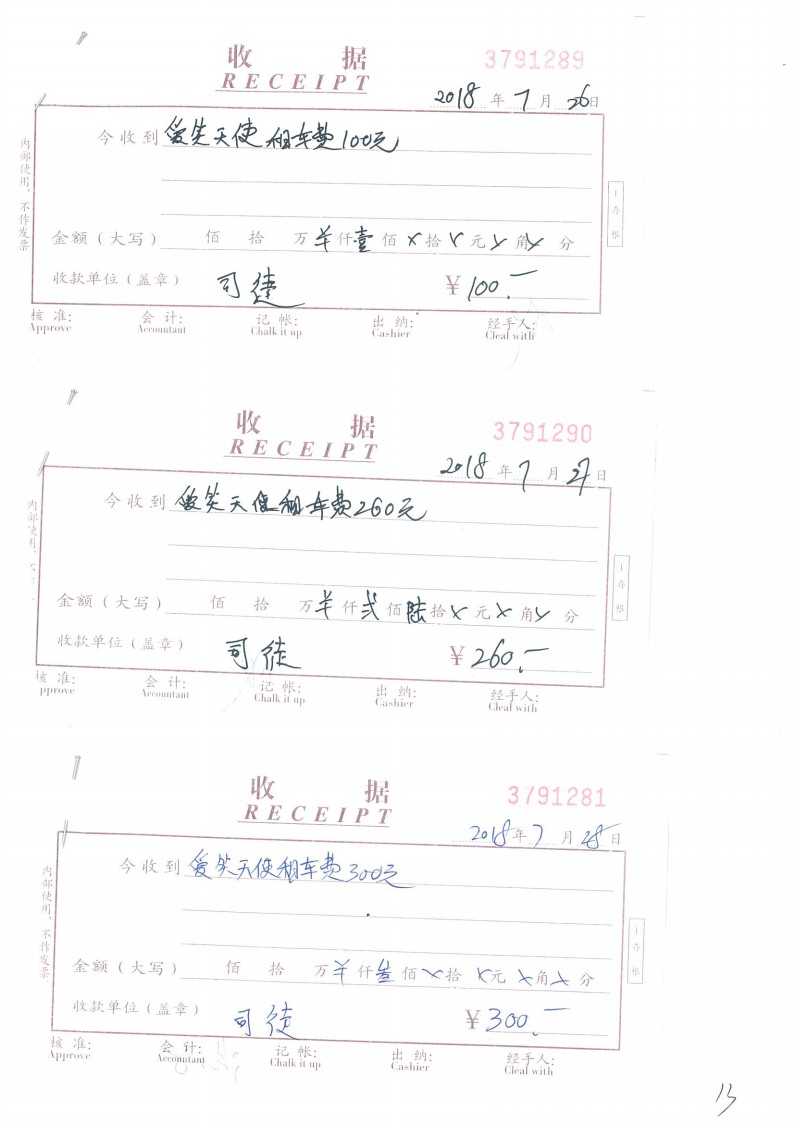 收 据
RECEIPT
3791289
2018 年 7 月 26 日
今收到 爱笑天使租车费100元
内部使用，不作发票
金额（大写） 佰 拾 万 羊 仟 壹 佰 x 拾 x 元 x 角 x 分
收款单位（盖章） 司徒 ￥100.—
核 准: 会 计: 记 帐: 出 纳: 经手人:
Approve Accountant Chalk it up Cashier Cleal with
收 据
RECEIPT
3791290
2018 年 7 月 27 日
今收到 爱笑天使租车费260元
金额（大写） 佰 拾 万 羊 仟 弍 佰 陆 拾 x 元 x 角 x 分
收款单位（盖章） 司徒 ￥260.—
核 准: 会 计: 记 帐: 出 纳: 经手人:
pprove Accountant Chalk it up Cashier Cleal with
收 据
RECEIPT
3791281
2018 年 7 月 28 日
今收到 爱笑天使租车费300元
内部使用，不作发票
金额（大写） 佰 拾 万 羊 仟 叁 佰 x 拾 x 元 x 角 x 分
收款单位（盖章） 司徒 ￥300.—
核 准: 会 计: 记 帐: 出 纳: 经手人:
Approve Accountant Chalk it up Cashier Cleal with
13